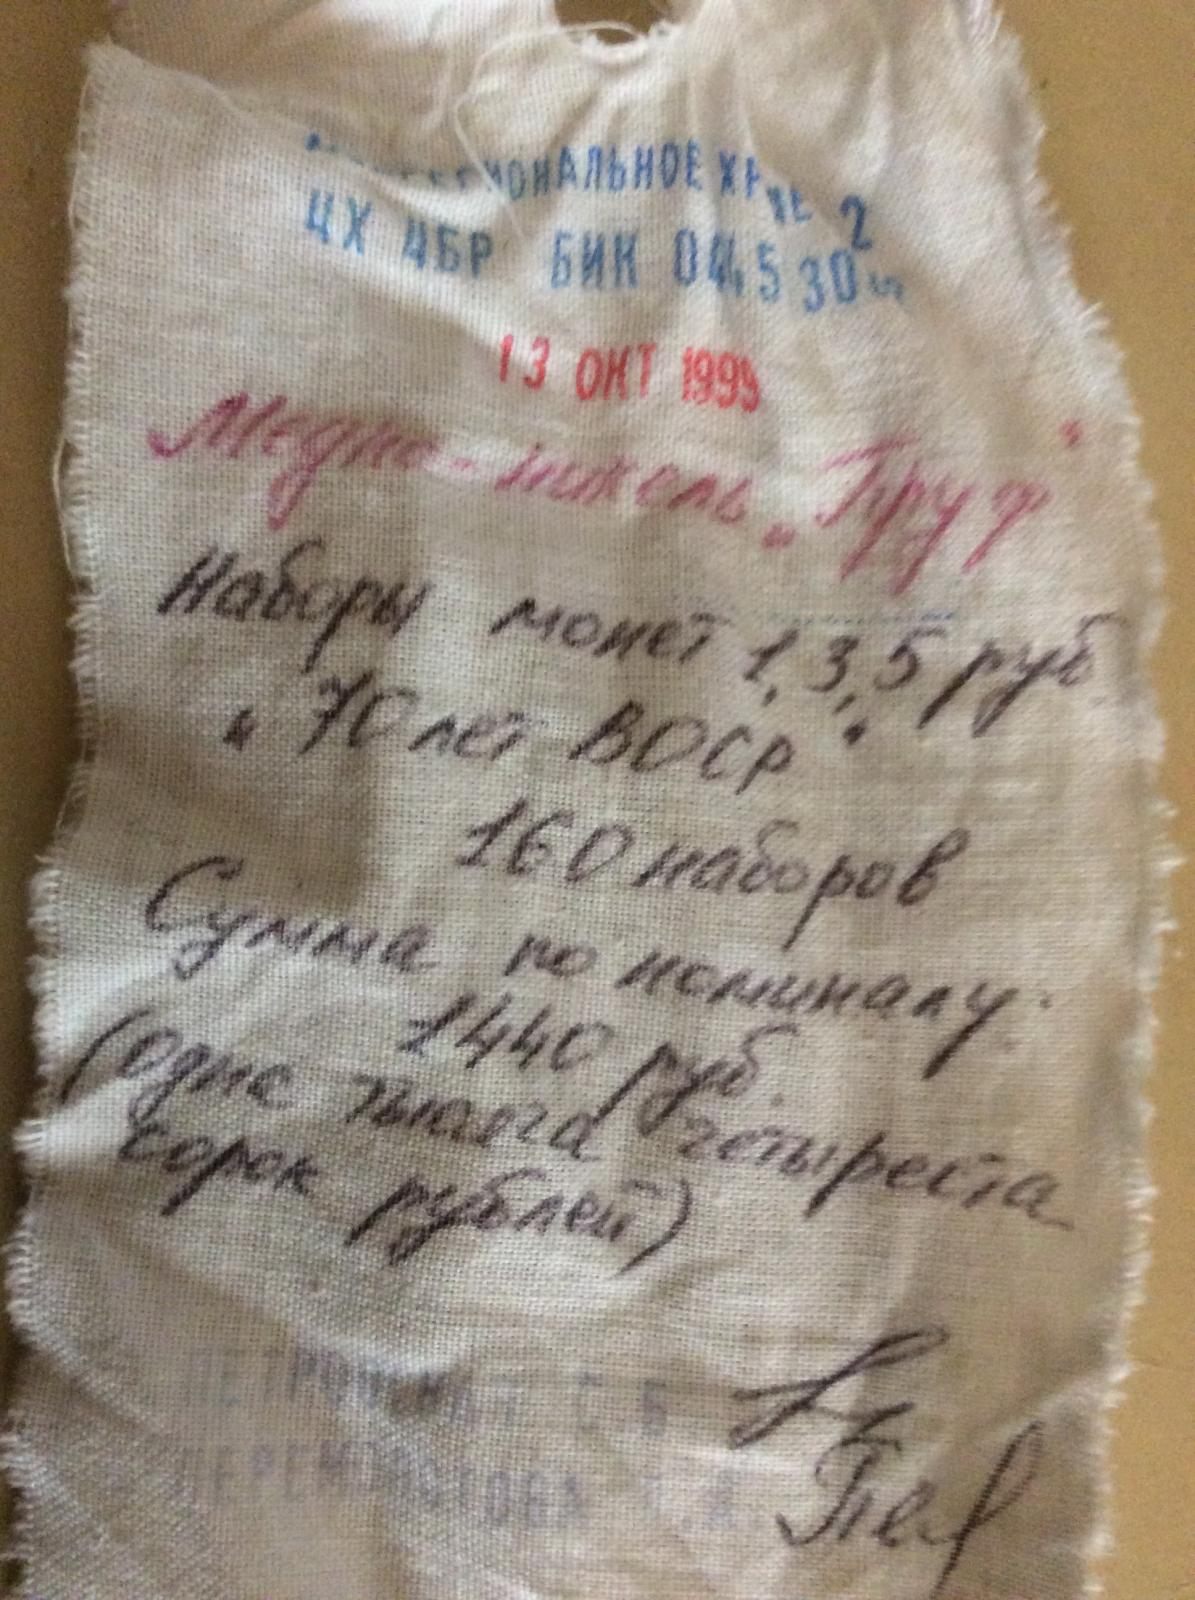 ХР
2
ЦХ ЦБР БИК 0445302
13 ОКТ 1995
Медно-никель „Пруф"
Наборы монет 1,3,5 руб
„70 лет ВОСР"
160 наборов
Сумма по номиналу:
1440 руб.
(одна тысяча четыреста
сорок рублей)